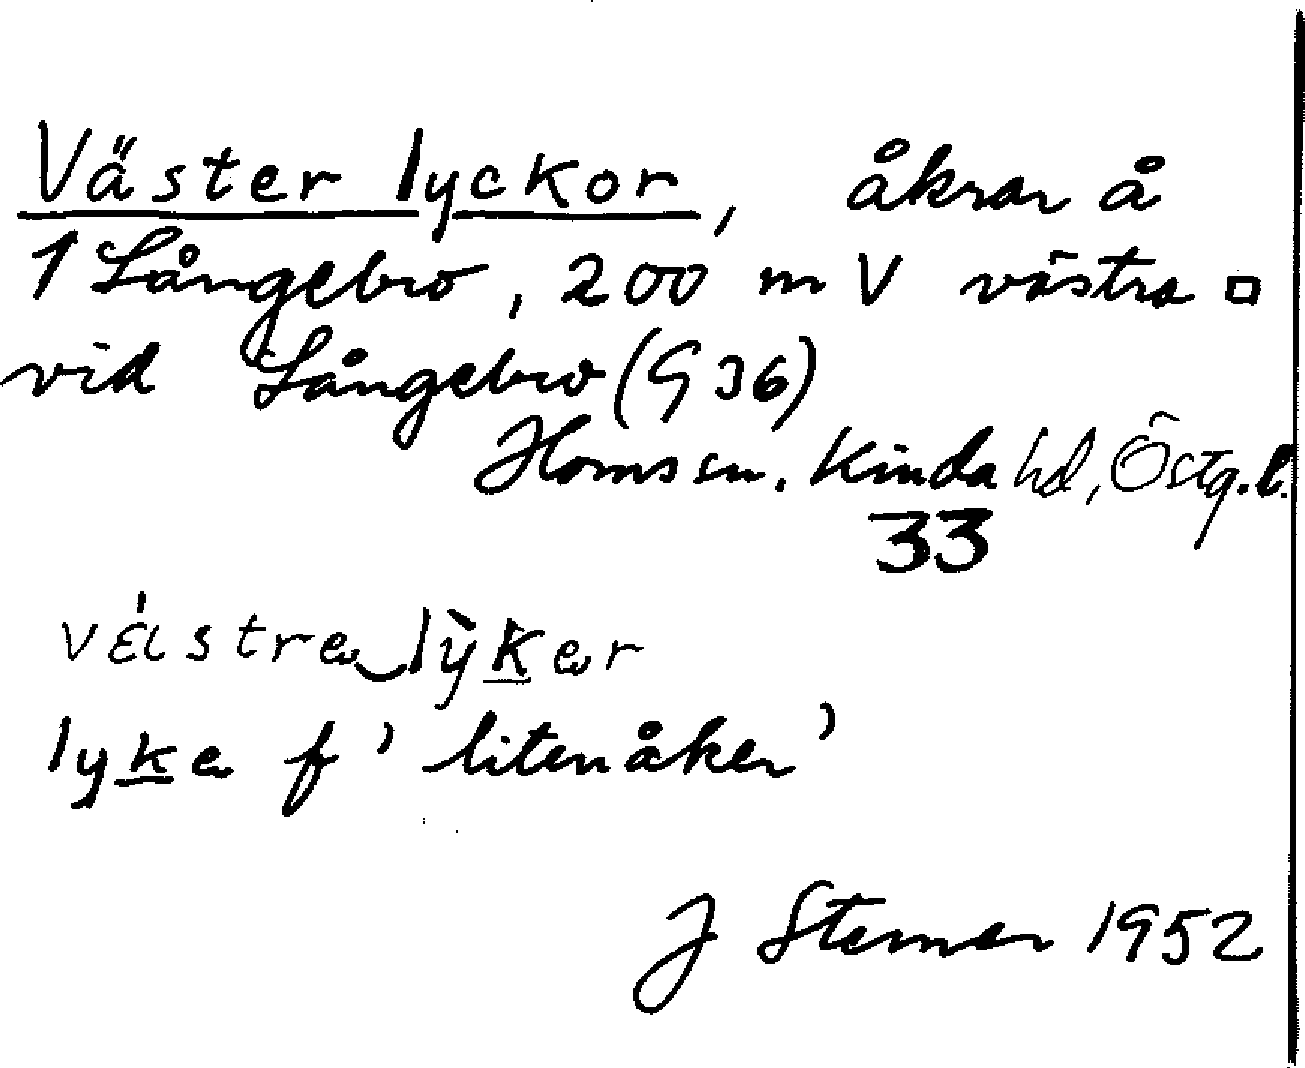 Väster lyckor, åkrar å
1 Långebro, 200 m V västra □
vid Långebro (G 36)
Horns sn. Kinda hd, Östg. l.
33
västra‿lỳk̲ar
lyk̲a f ' liten åker '
J Sterner 1952